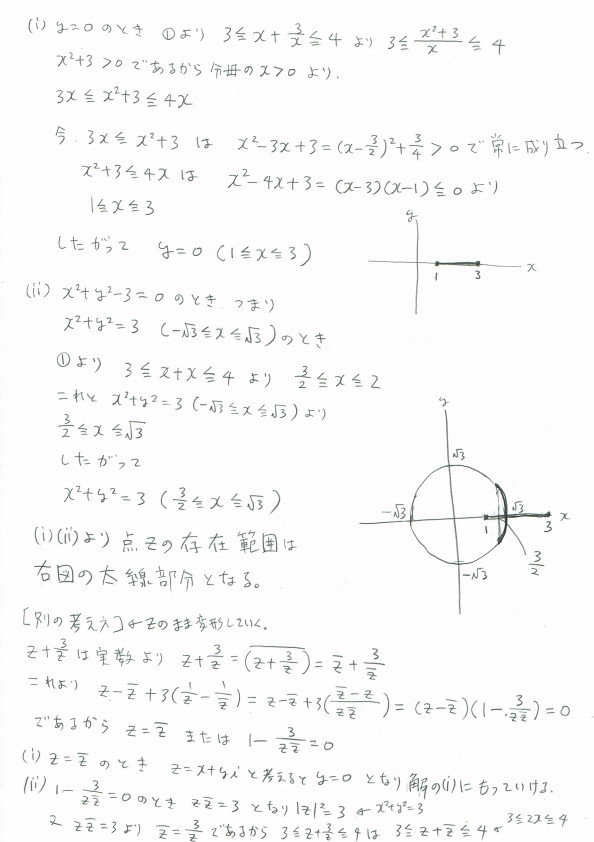 (i) y=0 のとき ①より 3≦x+3/x≦4 より 3≦(x²+3)/x≦4
x²+3>0であるから 分母のx>0より.
3x≦x²+3≦4x
今. 3x≦x²+3 は x²-3x+3=(x-3/2)²+3/4>0で常に成り立つ.
x²+3≦4x は x²-4x+3=(x-3)(x-1)≦0より
1≦x≦3
したがって y=0 (1≦x≦3)
y
x
1 3
(ii) x²+y²-3=0 のとき つまり
x²+y²=3 (-√3≦x≦√3)のとき
①より 3≦x+x≦4 より 3/2≦x≦2
これと x²+y²=3 (-√3≦x≦√3)より
3/2≦x≦√3
したがって
x²+y²=3 (3/2≦x≦√3)
y
√3
-√3 1 √3 3 x
3/2
-√3
(i)(ii)より 点Zの存在範囲は
右図の太線部分となる。
[別の考え方]←Zのまま変形していく.
z+3/z は実数より z+3/z=\overline{(z+3/z)}=z̄+3/z̄
これより z-z̄+3(1/z-1/z̄)=z-z̄+3((z̄-z)/(zz̄))=(z-z̄)(1-3/(zz̄))=0
であるから z=z̄ または 1-3/(zz̄)=0
(i) z=z̄ のとき z=x+yiと考えるとy=0 となり 解の(i)にもっていける.
(ii) 1-3/(zz̄)=0のとき zz̄=3 となり|z|²=3 ← x²+y²=3
zz̄=3より z̄=3/z であるから 3≦z+3/z≦4は 3≦z+z̄≦4 ← 3≦2x≦4